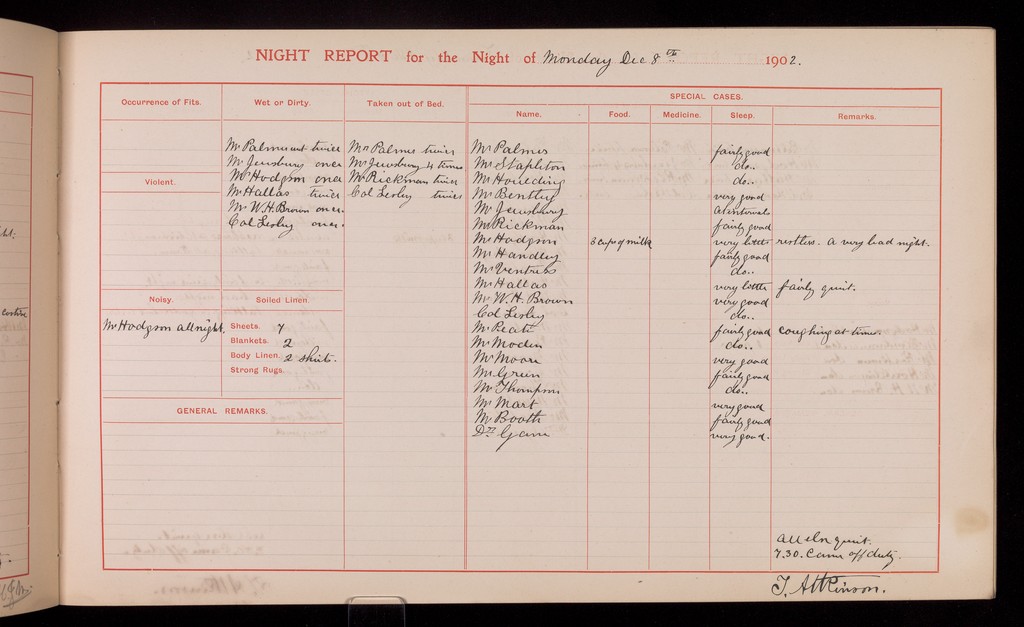 NIGHT REPORT for the Night of Monday Dec 8th 1902.
Occurrence of Fits.
Wet or Dirty.
Taken out of Bed.
SPECIAL CASES.
Name. Food. Medicine. Sleep. Remarks.
Mr Palmer wet twice
Mr Jewsbury once
Mr Hodgson once
Mr Hallas twice
Mr W.H. Brown once
Col Lesley once
Mr Palmer twice
Mr Jewsbury 4 times
Mr Rickman twice
Col Lesley twice
Violent.
Noisy.
Mr Hodgson all night.
Soiled Linen.
Sheets. 7
Blankets. 2
Body Linen. 2 shirts.
Strong Rugs.
GENERAL REMARKS.
Mr Palmer fairly good
Mr Stapleton do..
Mr Houlding do..
Mr Bentley very good
Mr Jewsbury at intervals
Mr Rickman fairly good
Mr Hodgson 3 cups of milk very little restless. a very bad night.
Mr Handley fairly good
Mr Ventress do..
Mr Hallas very little fairly quiet.
Mr W.H. Brown very good
Col Lesley do..
Mr Peate fairly good coughing at times.
Mr Moden do..
Mr Moore very good
Mr Green fairly good
Mr Thompson do..
Mr Mart very good
Mr Booth fairly good
Dr Game very good.
all else quiet.
7.30. Came off duty.
T. Atkinson.